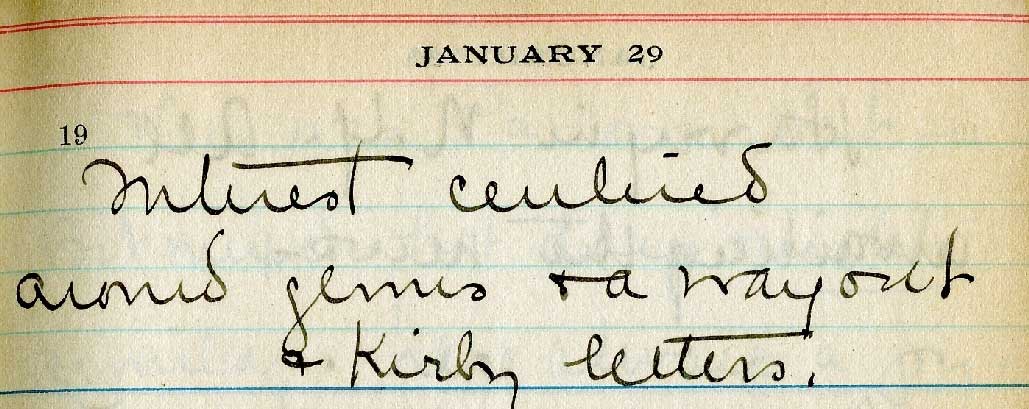 JANUARY 29
19
Interest centered
around genius & a way out
& Kirby letters.